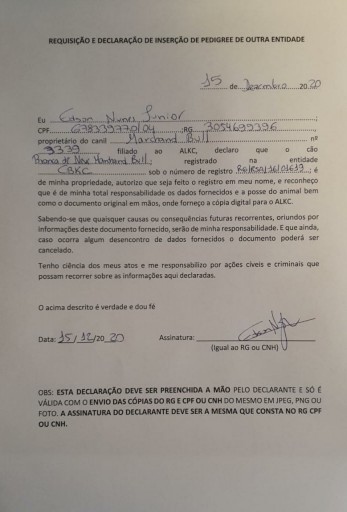 REQUISIÇÃO E DECLARAÇÃO DE INSERÇÃO DE PEDIGREE DE OUTRA ENTIDADE
15 de Dezembro 2020
Eu Edson Nunes Junior;
CPF 678339770/04 ;RG 3054699396,
proprietário do canil Marchand Bull nº
9339 filiado ao ALKC, declaro que o cão
de New Marchand Bull; registrado na entidade
CBKC sob o número de registro ; é
de minha propriedade, autorizo que seja feito o registro em meu nome, e reconheço
que é de minha total responsabilidade os dados fornecidos e a posse do animal bem
como o documento original em mãos, onde forneço a cópia digital para o ALKC.
Sabendo-se que quaisquer causas ou consequências futuras recorrentes, oriundos por
informações deste documento fornecido, serão de minha responsabilidade. E que ainda,
caso ocorra algum desencontro de dados fornecidos o documento poderá ser
cancelado.
Tenho ciência dos meus atos e me responsabilizo por ações cíveis e criminais que
possam recorrer sobre as informações aqui declaradas.
O acima descrito é verdade e dou fé
Data: 15/12/2020 Assinatura:
(Igual ao RG ou CNH)
OBS: ESTA DECLARAÇÃO DEVE SER PREENCHIDA A MÃO PELO DECLARANTE E SÓ É
VÁLIDA COM O ENVIO DAS CÓPIAS DO RG E CPF OU CNH DO MESMO EM JPEG, PNG OU
FOTO. A ASSINATURA DO DECLARANTE DEVE SER A MESMA QUE CONSTA NO RG CPF
OU CNH.